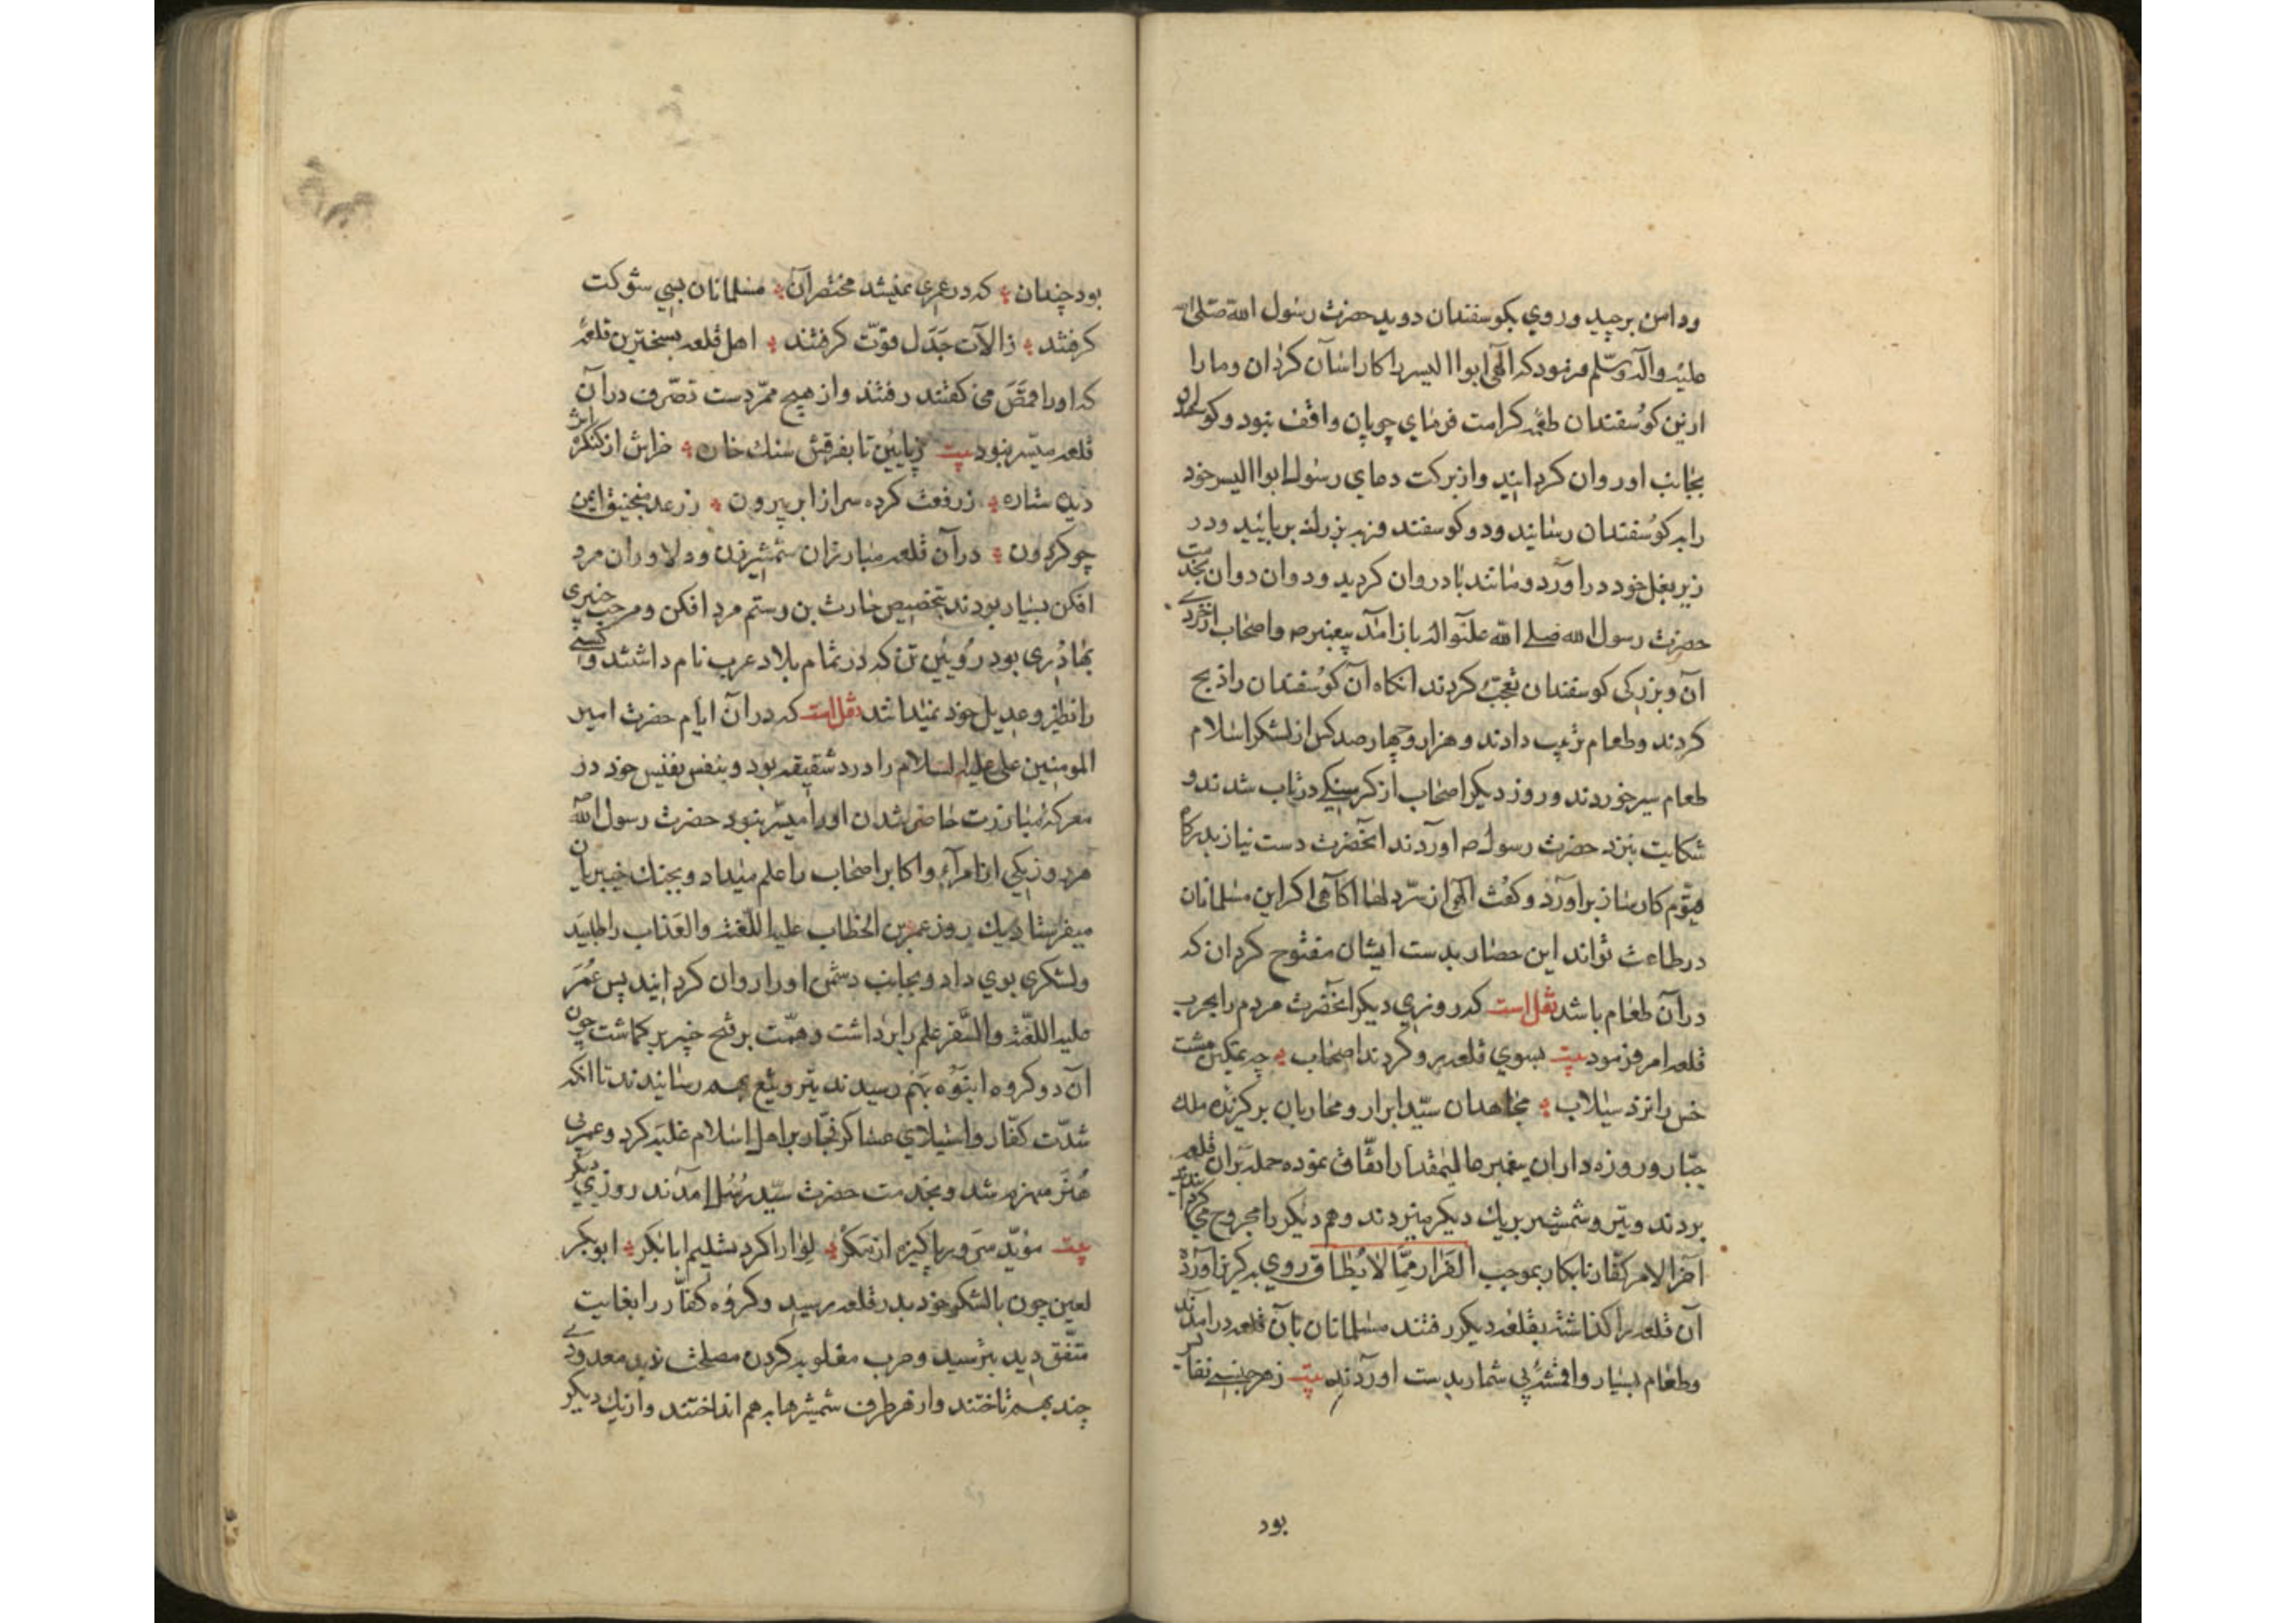 ودامن برچید وروي بکوسفندان دوید حضرت رسول الله صلی الله
علیه وآله وسلم فرمود که الهی ابوا الیسر را کاراسان کردان وما را
ازین کوسفندان طعمه کرامت فرمای چوپان واقف نبود وکوسفندان
بجانب او روان کردانید واز برکت دعاي رسول ابوا الیسر خود
را بکوسفندان رسانید ودو کوسفند فربه بزرك بربائید ودر
زیر بغل خود در اورد ومانند باد روان کردید ودوان دوان بخدمت
حضرت رسول الله صلی الله علیه واله باز امد پیغنبر ص واصحاب از خردی
آن وبزرکی کوسفندان تعجب کردند انکاه آن کوسفندان را ذبح
کردند وطعام ترتیب دادند وهزار وچهار صد کس از لشکر اسلام
طعام سیر خوردند وروز دیکر اصحاب از کرسنیکی درتاب شدند و
شکایت بنزد حضرت رسول ص اوردند انحضرت دست نیاز بدرکاه
قیوم کارساز براورد وکفت الهی از سرّ دلها اکاهی اکر این مسلمانان
درطاعت تواند این حصار بدست ایشان مفتوح کردان که
در آن طعام باشد نقل است که روزی دیکر انحضرت مردم را بحرب
قلعه امر فرمود بیت بسوي قلعه رو کردند اصحاب چه تمکین مشت
خس را نزد سیلاب مجاهدان سیّد ابرار ومحاربان برکزیده ملك
جبّار وروزه داران پیغمبر عالیمقدار اتّفاق نموده حمله بران قلعه
بردند وتیر وشمشیر بریك دیکر میزدند وهم دیکر را مجروح می کردند
آخر الامر کفّار نابکار بموجب الفرار ممّا لا یطاق روي بکریز آورده
آن قلعه را کذاشته بقلعه دیکر رفتند مسلمانان بآن قلعه در امدند
وطعام بسیار واقمشه بی شمار بدست اوردند بیت زهر جنسی نفایس
بود
بود چندان که در عمری نمیشد مختصر آن مسلمانان بسی شوکت
کرفتند ز الات جدل قوّت کرفتند اهل قلعه بسختترین قلعه
که اورا قمص می کفتند رفتند واز هیچ ممرّ دست تصرّف در آن
قلعه میسر نبود بیت ز پایین تا بفرقش سنك خاره خراش از کنکره‌اش
دیده ستاره ز رفعت کرده سر از ابر بیرون ز رعد منجنیق ایمن
چو کردون در آن قلعه مبارزان شمشیرزن ودلاوران مرد
افکن بسیار بودند بتخصیص حارث بن وستم مرد افکن ومرحب خیبری
بهادری بود رویین تن که در تمام بلاد عرب نام داشتند وکسی
را نظیر وعدیل خود نمیدانند نقل است که در آن ایام حضرت امیر
المومنین علی علیه السلام را درد شقیقه بود وبنفس نفیس خود در
معرکه مبارزت حاضر شدن اورا میسّر نبود حضرت رسول الله ص
هر روز یکی از امراء واکابر اصحاب را علم میداد وبجنك خیبریان
میفرستاد یك روز عمر بن الخطاب علیه اللّعنة والعذاب را طلبید
ولشکری بوي داد وبجانب دشمن اورا روان کردانید پس عُمَر
علیه اللعنة والسّقر علم را برداشت وهمّت بر فتح خیبر بر کماشت چون
آن دو کروه انبوه بهم رسیدند تیر وتیغ بهم رسانیدند تا انکه
شدّت کفّار واستیلاي عساکر فجّار بر اهل اسلام غلبه کرد وعمر بی
هنَر منهزم شد وبخدمت حضرت سیّد رُسُل امدند روزی دیکر
بیت مؤیّد سرور پاکیزه از مکر لوا را کرد تسلیم ابا بکر ابو بکر
لعین چون با لشکر خود بدر قلعه رسید وکروه کفّار را بغایت
متّفق دید بترسید وحرب مغلوبه کردن مصلحت ندید معدودی
چند بهم تاختند واز هر طرف شمشیرها بهم انداختند واز یك دیکر